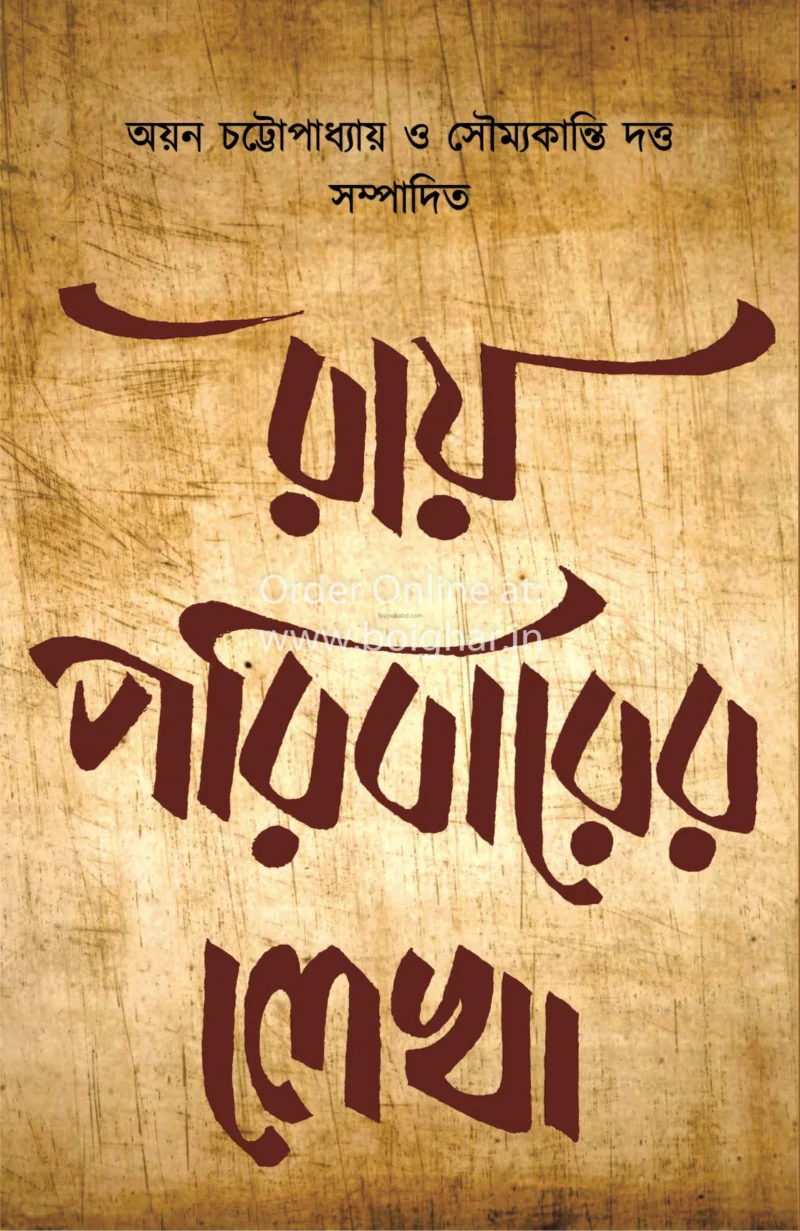 অয়ন চট্টোপাধ্যায় ও সৌম্যকান্তি দত্ত
সম্পাদিত
রায়
Order Online at:
Boipokabd.com
www.boighar.in
পরিবারের
লেখা